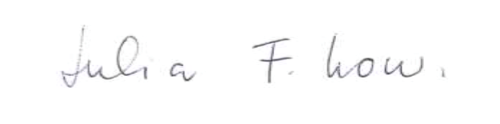 Julia F. Low.